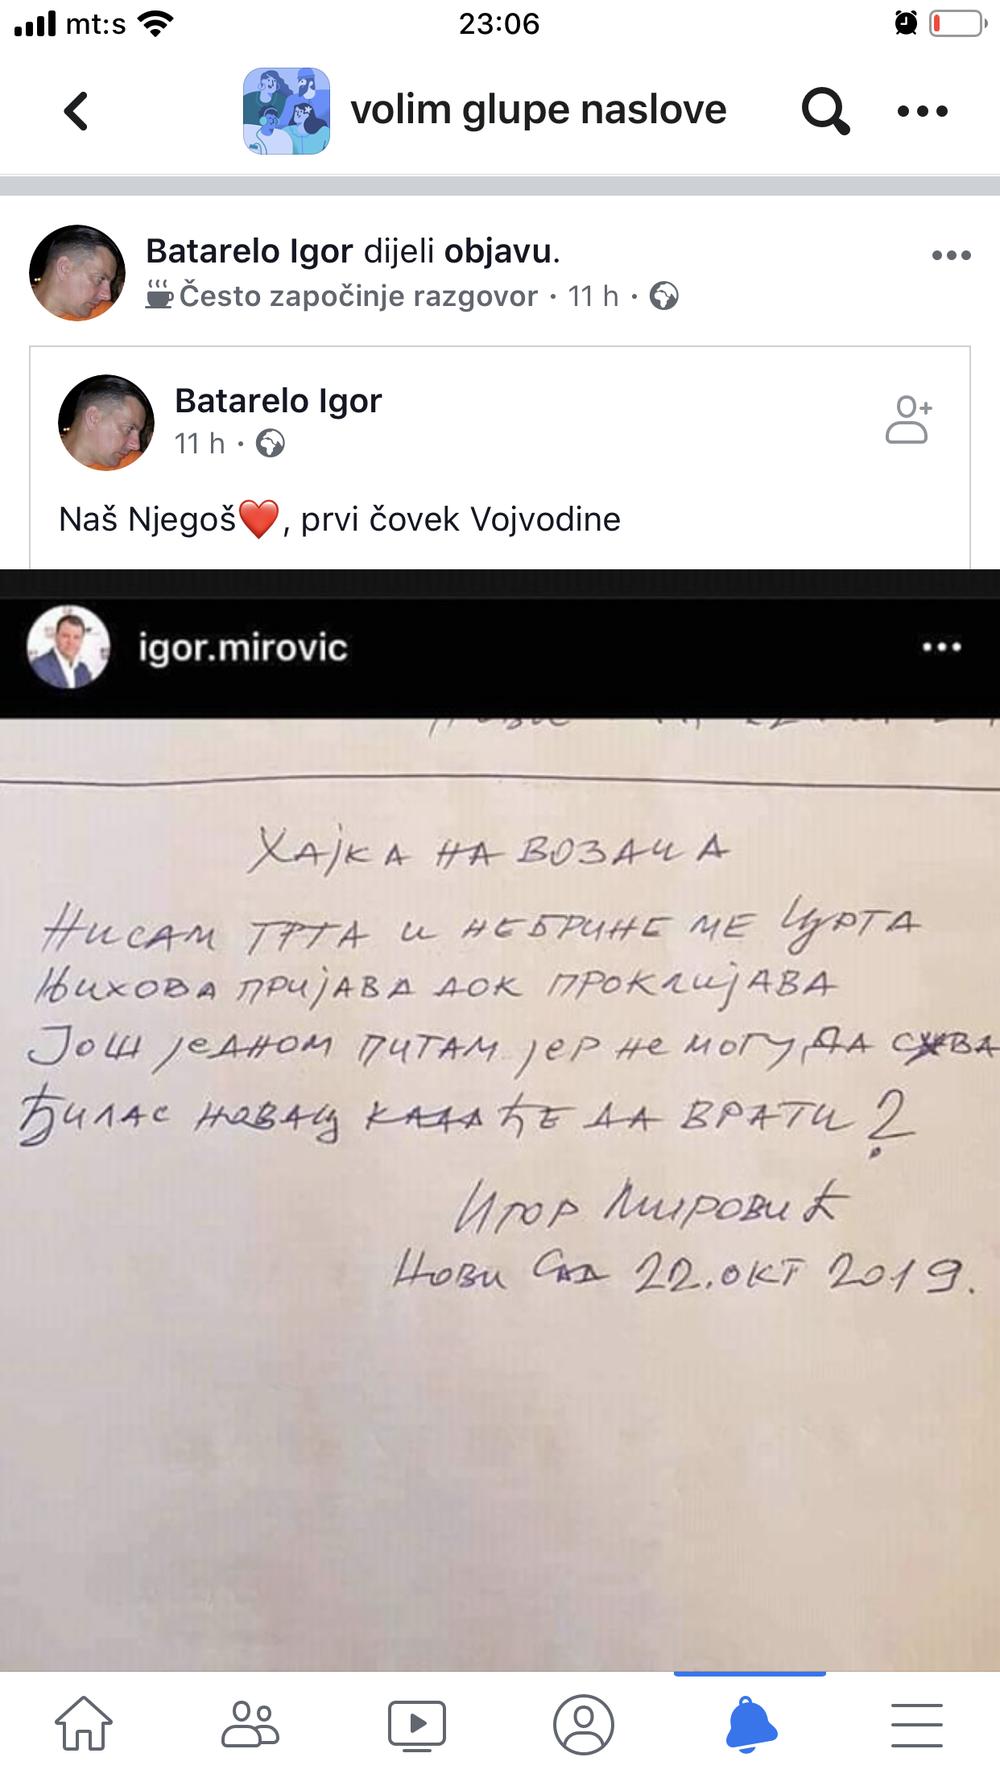 mt:s 23:06
volim glupe naslove
Batarelo Igor dijeli objavu.
Često započinje razgovor · 11 h ·
Batarelo Igor
11 h ·
Naš Njegoš❤️, prvi čovek Vojvodine
igor.mirovic
Хајка на возача
Нисам трта и небрине ме Црта
Њихова пријава док проклијава
Још једном питам јер не могу да
Ђилас новац када ће да врати?
Игор Мировић
Нови Сад 22. окт 2019.